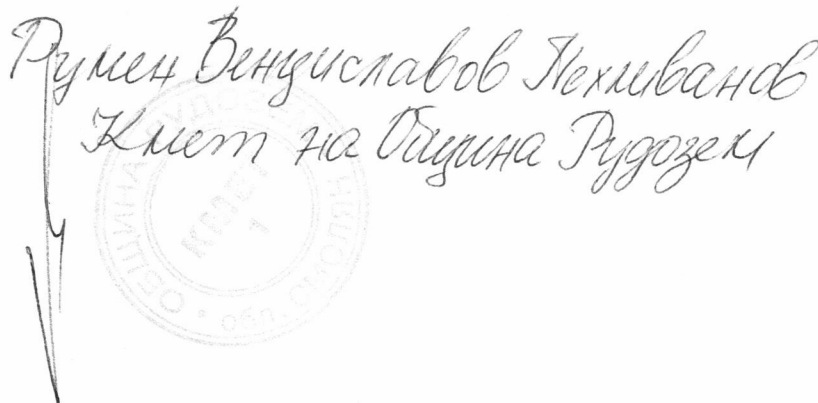 Румен Венциславов Пехливанов
Кмет на Община Рудозем
ОБЩИНА РУДОЗЕМ • обл. СМОЛЯН
КМЕТ
1